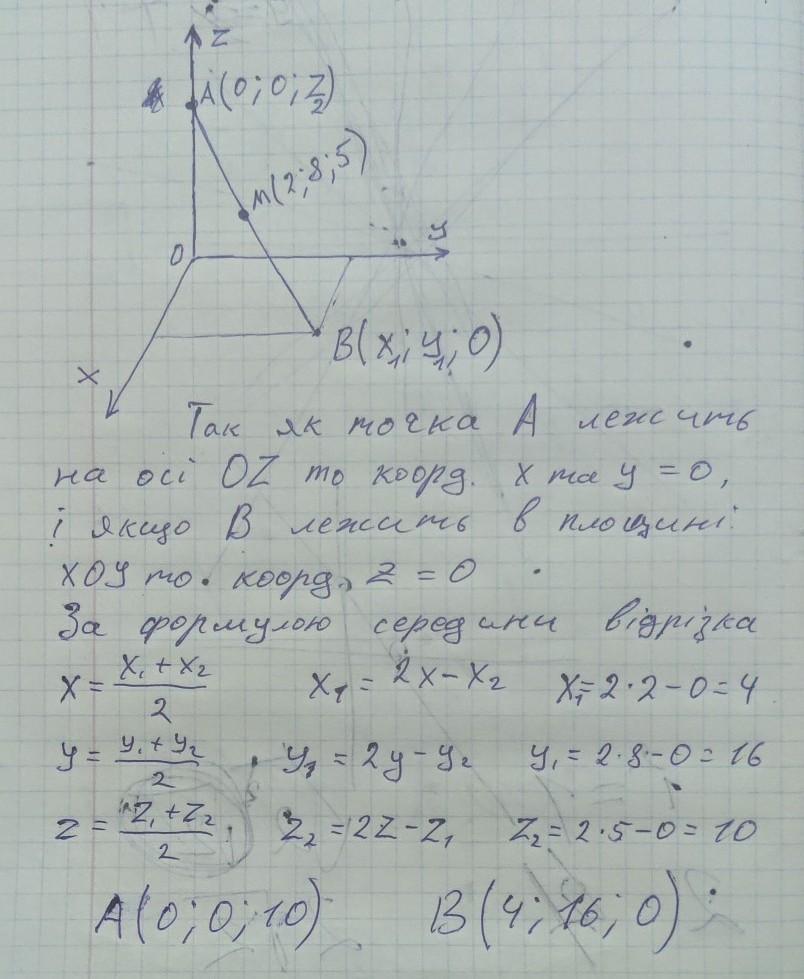 Z
A(0; 0; Z₂)
M(2; 8; 5)
O
y
B(x₁; y₁; 0)
X
Так як точка А лежить
на осі OZ то коорд. x та y = 0,
і якщо В лежить в площині
XOY то коорд. z = 0
За формулою середини відрізка
x = (x₁ + x₂)/2 x₁ = 2x - x₂ x₁ = 2·2 - 0 = 4
y = (y₁ + y₂)/2 y₁ = 2y - y₂ y₁ = 2·8 - 0 = 16
z = (z₁ + z₂)/2 z₂ = 2z - z₁ z₂ = 2·5 - 0 = 10
A(0; 0; 10) B(4; 16; 0)